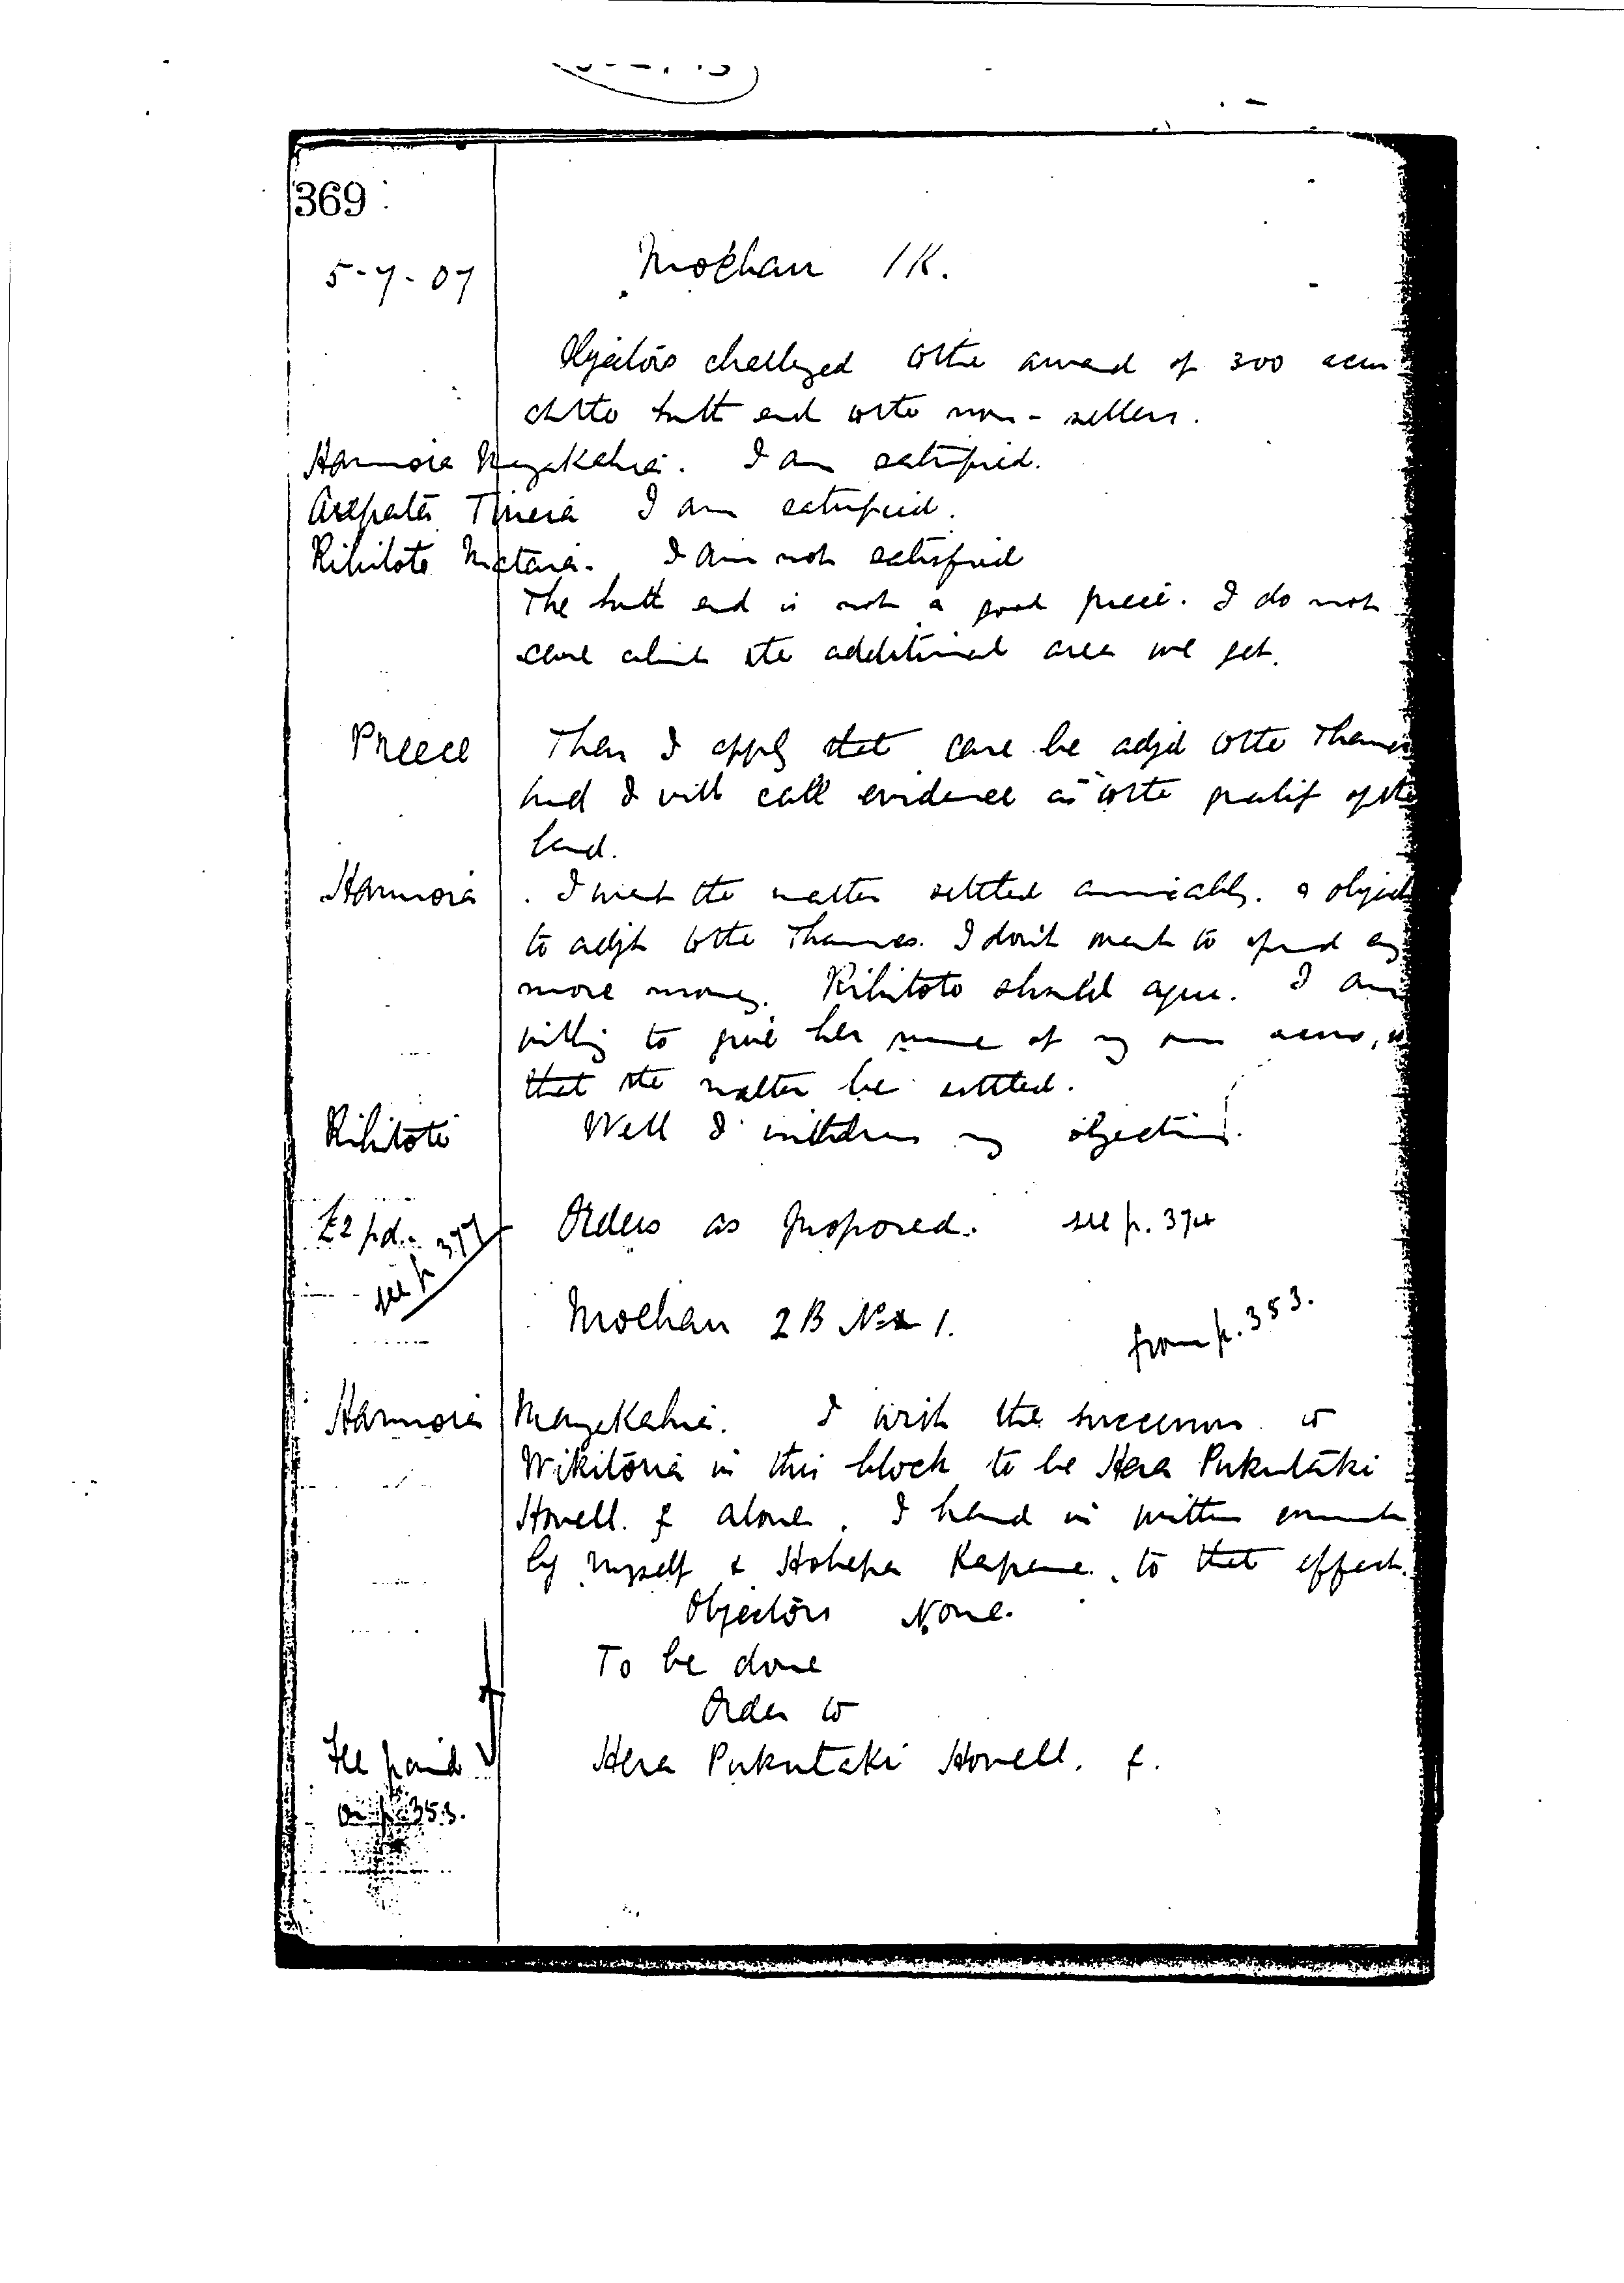 369
5-7-07
Moehau 1K.
Objectors challenged to the award of 300 acres
at the butt end to the non-sellers.
Hamiora Mangakahia. I am satisfied.
Arepata Tineia I am satisfied.
Rihitoto Mataia. I am not satisfied
The butt end is not a good piece. I do not
care about the additional area we get.
Preece Then I apply that case be adjd to the Thames
and I will call evidence as to the quality of the
land.
Hamiora. I want the matter settled amicably. & object
to adjt to the Thames. I don't want to spend any
more money. Rihitoto should agree. I am
willing to give her some of my own acres, so
that the matter be settled.
Rihitoto Well I withdraw my objection.
£2 pd. see p 377 Orders as proposed. see p. 374
Moehau 2B No 1. from p. 353.
Hamiora Mangakahia. I wish the successor to
Wikitoria in this block to be Hera Pukutaki
Howell. f alone. I hand in written consent
by myself & Hohepa Kapene. to that effect.
Objectors None.
To be done
Order to
Fee paid Hera Pukutaki Howell. f.
on p 353.